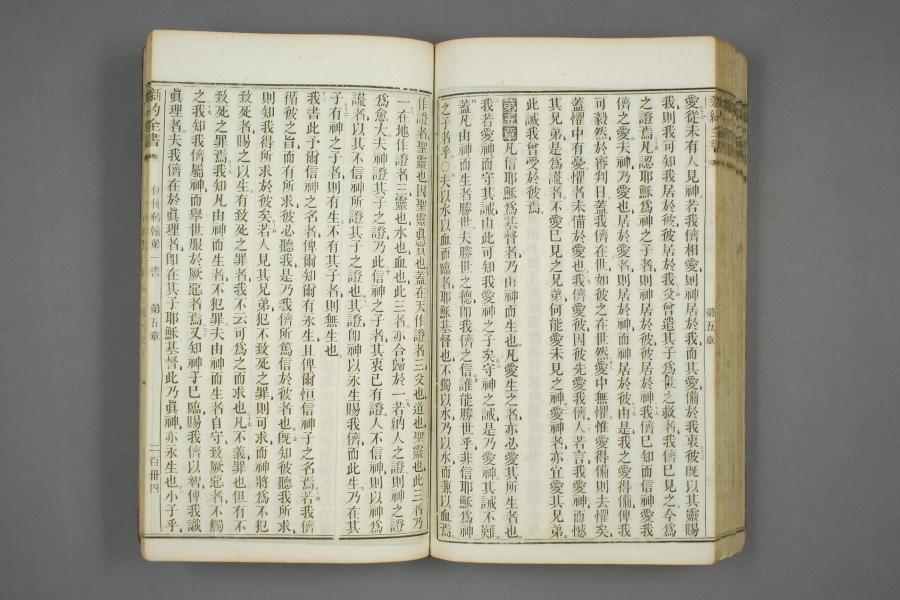 愛從未有人見神若我儕相愛則神居於我而其愛備於我衷彼旣以其靈賜
我則可知我居於彼彼居於我父曾遣其子爲世之救者我儕已見之今爲
之證焉凡認耶穌爲神之子者則神居於彼彼居於神我儕已知而信神愛我
儕之愛夫神乃愛也居於愛者則居於神而神居於彼由是我之愛得備俾我
可毅然於審判日蓋我儕在世如彼之在世然愛中無懼惟愛得備則去懼矣
蓋懼中有憂懼者未備於愛也我儕愛彼因彼先愛我儕人若言我愛神而憾
其兄弟是爲謊者不愛已見之兄弟何能愛未見之神愛神者亦宜愛其兄弟
此誡我曾受於彼焉
第五章 凡信耶穌爲基督者乃由神而生也凡愛生之者亦必愛其所生者也
我若愛神而守其誡由此可知我愛神之子矣守神之誡是乃愛神其誡不難
蓋凡由神而生者勝世夫勝世之德卽我儕之信誰能勝世乎非信耶穌爲神
之子者乎○夫以水以血而臨者耶穌基督也不獨以水乃以水而兼以血焉
第五章
作證者聖靈也因聖靈眞實也蓋在天作證者三父也道也聖靈也此三者乃
一在地作證者三靈也水也血也此三者亦合歸於一若納人之證則神之證
爲愈大夫神證其子之證乃此信神之子者其衷已有證人不信神則以神爲
謊者以其不信神所證其子之證也其證卽神以永生賜我儕而此生乃在其
子有神之子者則有生不有其子者則無生也
我書此予爾信神之子名者俾爾知爾有永生且俾爾恒信神子之名焉若我儕
循彼之旨而有所求彼必聽我是乃我儕所篤信於彼者也旣知彼聽我所求
則知我得所求於彼矣若人見其兄弟犯不致死之罪則可求而神將爲不犯
致死者賜之以生有致死之罪者我不云可爲之而求也凡不義罪也但有不
致死之罪焉我知凡由神而生者不犯罪夫由神而生者自守致厥惡者不觸
之我知我儕屬神而舉世服於厥惡者焉又知神子已臨賜我儕以智俾我識
眞理者夫我儕在於眞理者卽在其子耶穌基督此乃眞神亦永生也小子乎
新約全書
第五章
二百卌四